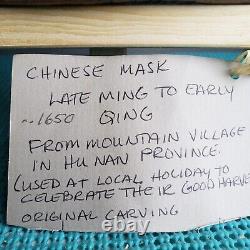 CHINESE MASK
LATE MING TO EARLY
~1650 QING
FROM MOUNTAIN VILLAGE
IN HUNAN PROVINCE.
(USED AT LOCAL HOLIDAY TO
CELEBRATE THEIR GOOD HARVE
ORIGINAL CARVING